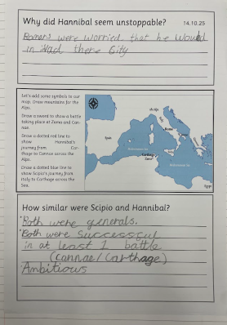 Why did Hannibal seem unstoppable?
16.10.25
Romens were worried that he Would
in Vad there City
Let's add some symbols to our
map. Draw mountains for the
Alps.
Draw a sword to show a battle
taking place at Rome and Can-
nae.
Draw a dotted red line to
show Hannibal's
journey from Car-
thage to Cannae across the
Alps.
Draw a dotted blue line to
show Scipio's journey from
Italy to Carthage across the
Sea.
How similar were Scipio and Hannibal?
Both were generals.
Both were successful
in at least 1 battle
(cannae/Carthage)
Ambitious